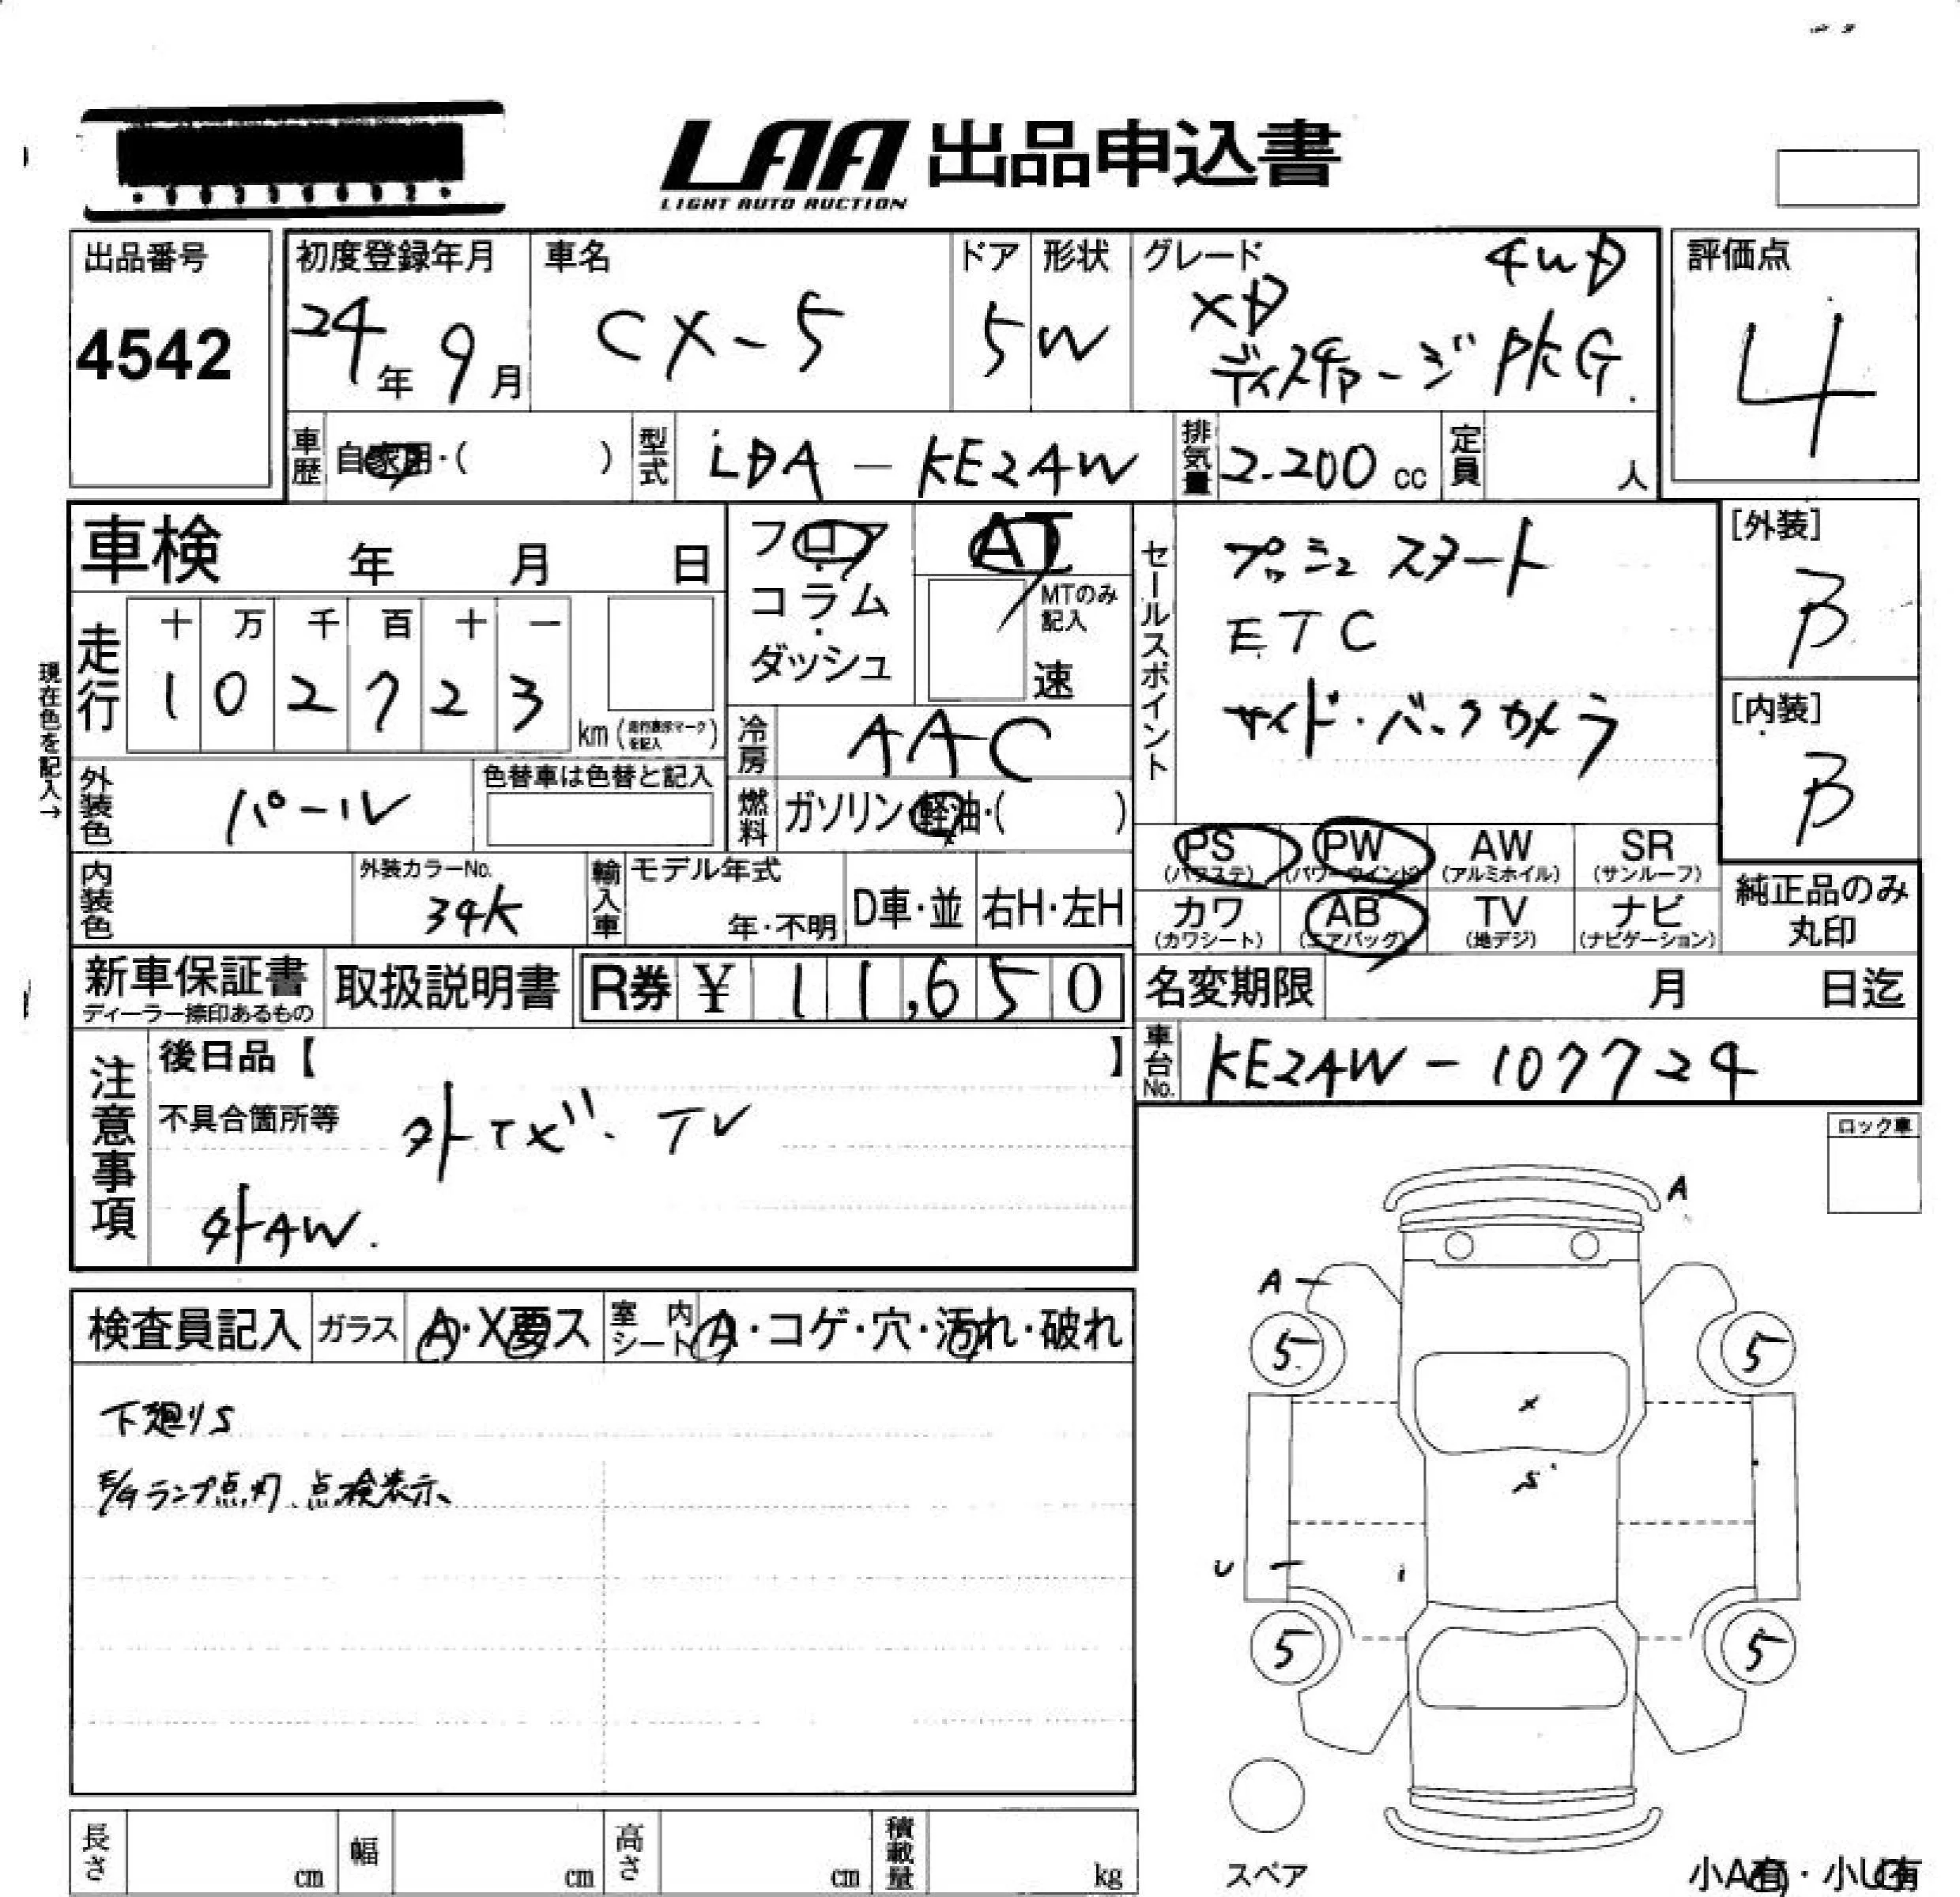 LAA 出品申込書
LIGHT AUTO AUCTION
出品番号
4542
初度登録年月
24年 9月
車名
CX-5
ドア
5
形状
W
グレード
4WD
XD
ディスチャージPKG.
評価点
4
車歴 自家用・( )
型式 LDA-KE2AW
排気量 2.200 cc
定員 人
車検 年 月 日
走行
十 万 千 百 十 一
1 0 2 7 2 3
km(走行表示マークを記入)
現在色を記入→
外装色 パール
色替車は色替と記入
内装色
外装カラーNo.
34K
フロア
・
コラム
・
ダッシュ
AT
MTのみ記入
速
冷房 AAC
燃料 ガソリン・軽油・( )
輸入車 モデル年式
年・不明
D車・並
右H・左H
セールスポイント
プッシュスタート
ETC
サイド・バックカメラ
[外装]
B
[内装]
B
PS (パワステ)
PW (パワーウインド)
AW (アルミホイル)
SR (サンルーフ)
カワ (カワシート)
AB (エアバッグ)
TV (地デジ)
ナビ (ナビゲーション)
純正品のみ丸印
新車保証書
ディーラー捺印あるもの
取扱説明書
R券 ¥ 11,650
名変期限 月 日迄
車台No. KE2AW-107724
注意事項
後日品【 】
不具合箇所等
外ナビ・TV
外AW.
ロック車
検査員記入
ガラス A・X要ス
室内シート A・コゲ・穴・汚れ・破れ
下廻りS
E/Gランプ点灯、点検表示
A
A
5
5
X
S
U
i
5
5
スペア
小A有・小U有
長さ cm
幅 cm
高さ cm
積載量 kg